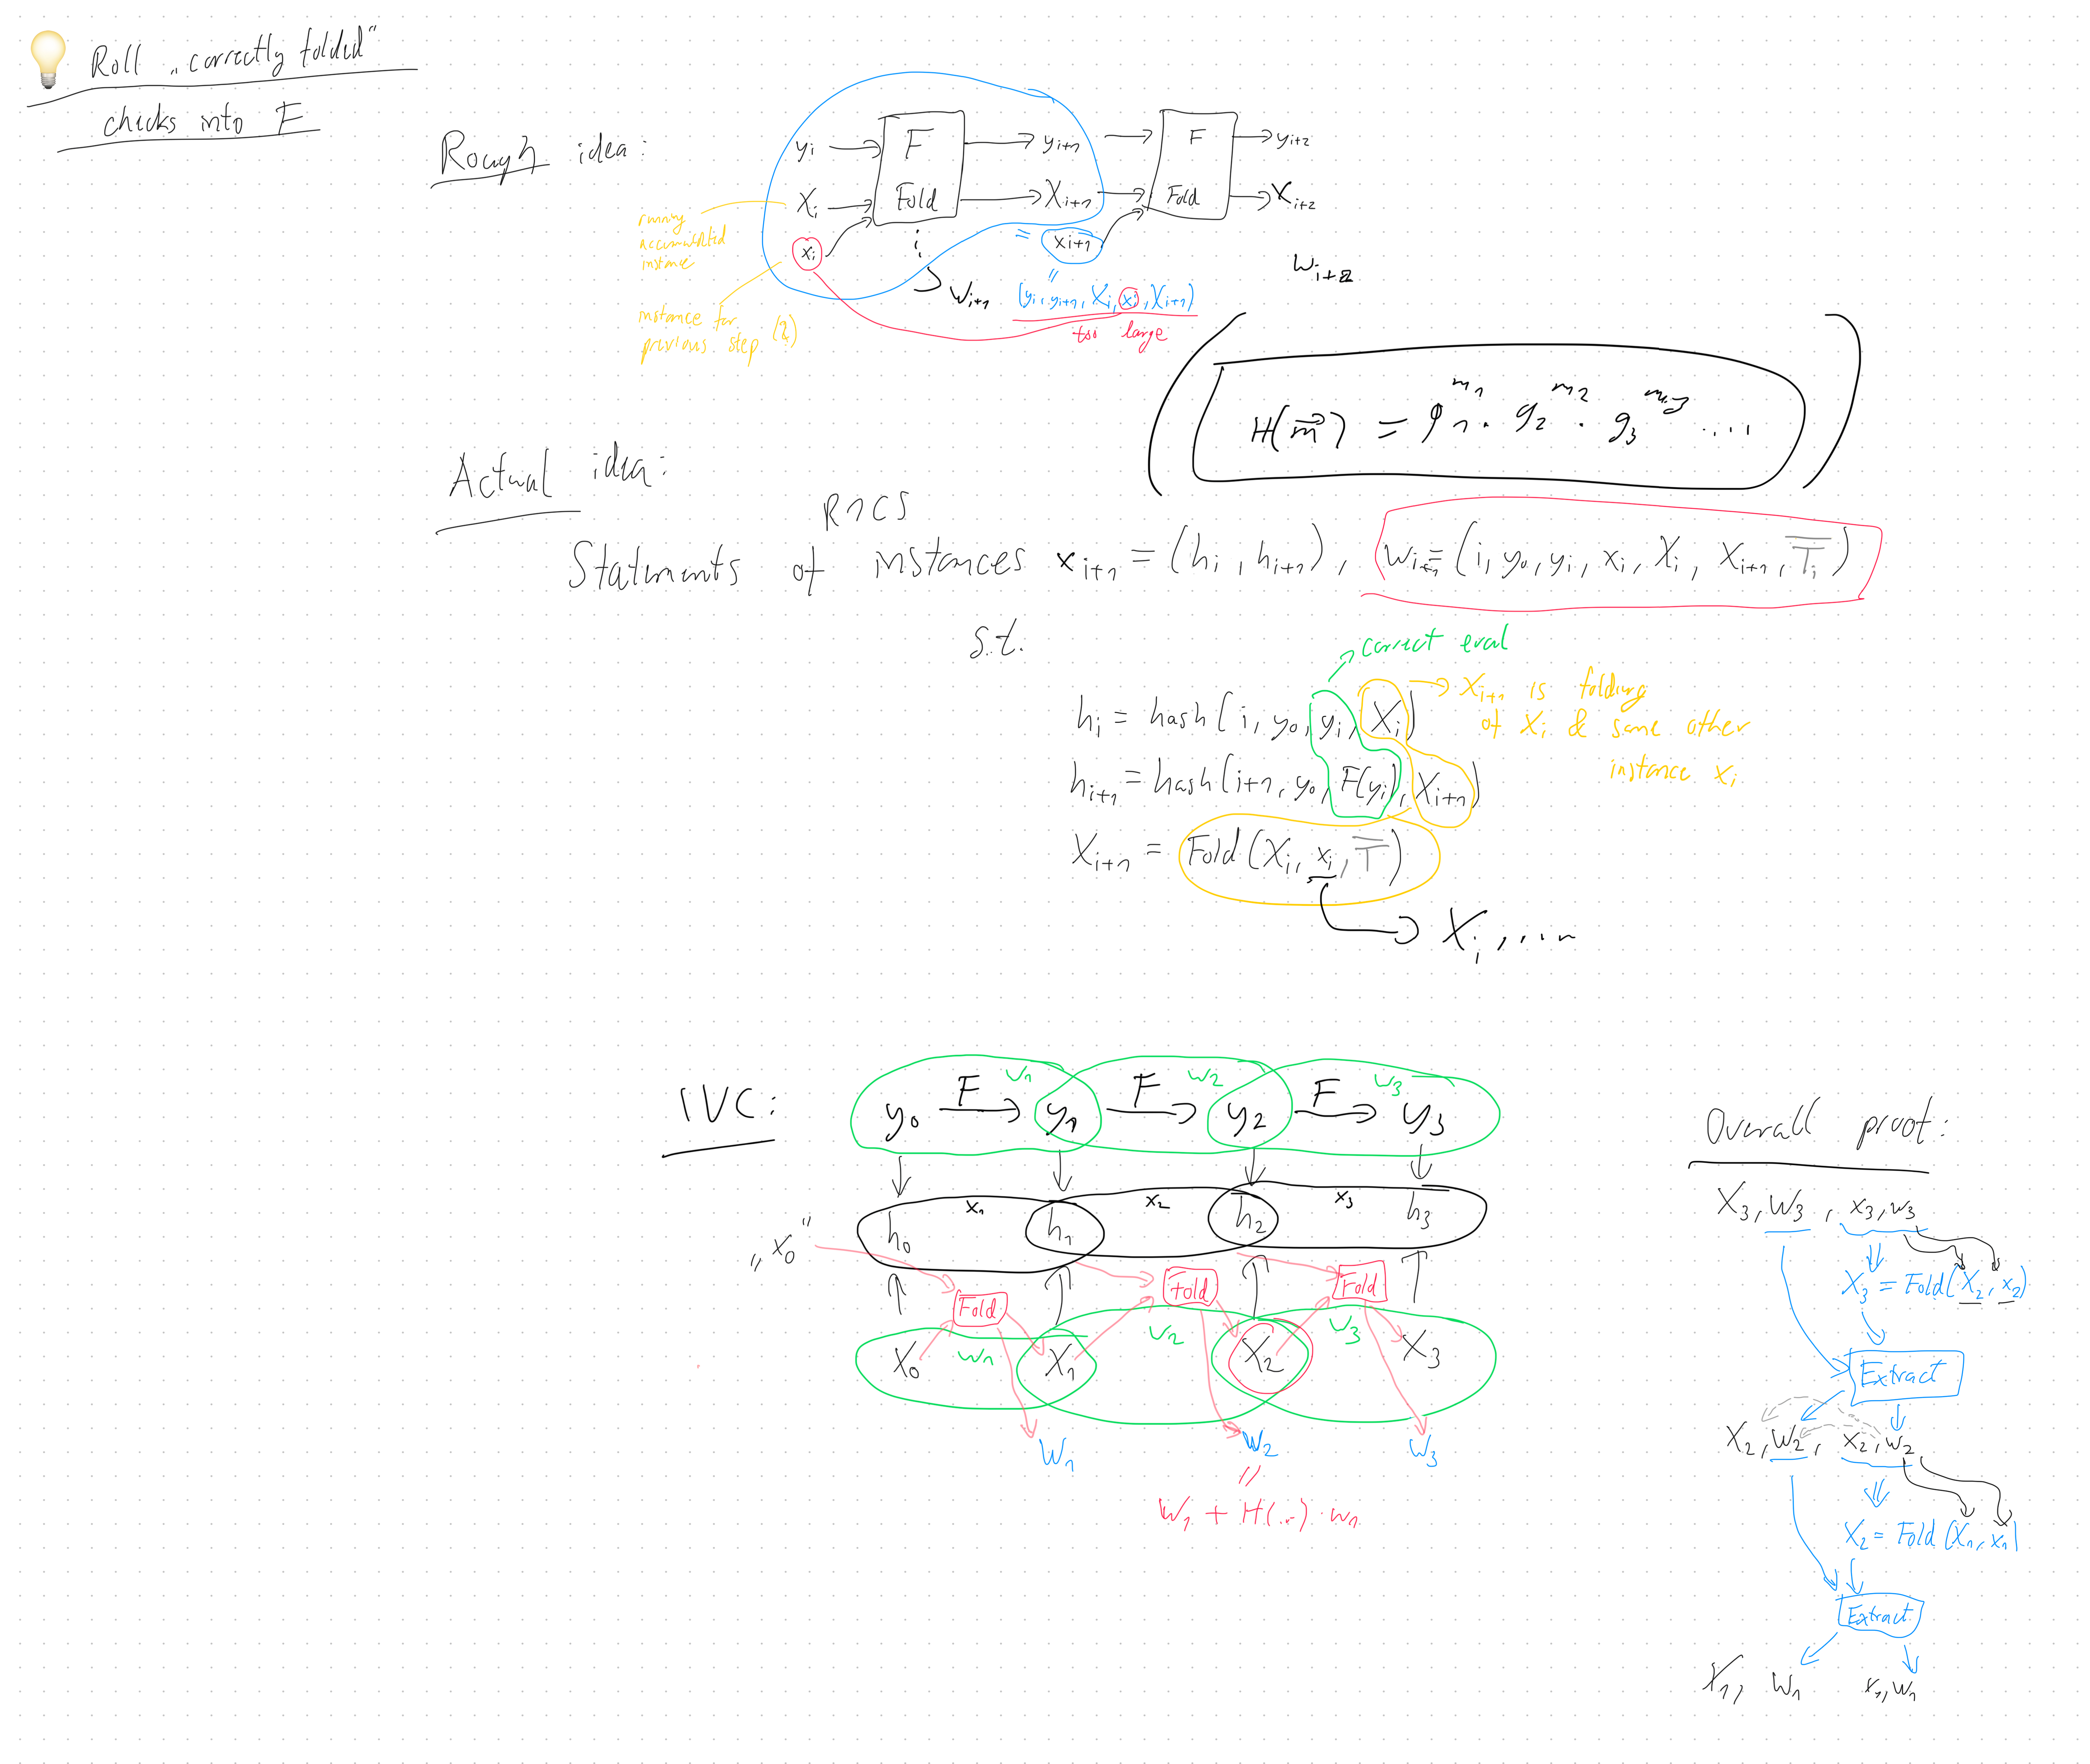 Roll „correctly folded"
checks into F
Rough idea:
y_i → F → y_{i+1} → F → y_{i+2}
X_i → Fold → X_{i+1} → Fold → X_{i+2}
x_i
= x_{i+1}
running
accumulated
instance
instance for
previous step (?)
W_{i+1}
W_{i+2}
(y_i, y_{i+1}, X_i, x_i, X_{i+1})
too large
H(m⃗) = g_1^{m_1} · g_2^{m_2} · g_3^{m_3} ....
Actual idea:
R1CS
Statements of instances x_{i+1} = (h_i, h_{i+1}), w_{i+1} = (i, y_0, y_i, x_i, X_i, X_{i+1}, T̿_i)
s.t.
correct eval
h_i = hash(i, y_0, y_i, X_i)
→ X_{i+1} is folding
of X_i & some other
instance x_i
h_{i+1} = hash(i+1, y_0, F(y_i), X_{i+1})
X_{i+1} = Fold(X_i, x_i, T̿)
→ X_i, ....
IVC:
F w_1 F w_2 F w_3
y_0 → y_1 → y_2 → y_3
x_1 x_2 x_3
h_0 h_1 h_2 h_3
„x_0"
Fold Fold Fold
w_1 w_2 w_3
X_0 X_1 X_2 X_3
W_1 W_2 W_3
=
W_1 + H(...) · w_1
Overall proof:
X_3, W_3, x_3, w_3
⇓
X_3 = Fold(X_2, x_2)
Extract
X_2, W_2, x_2, w_2
⇓
X_2 = Fold(X_1, x_1)
Extract
X_1, W_1 x_1, w_1